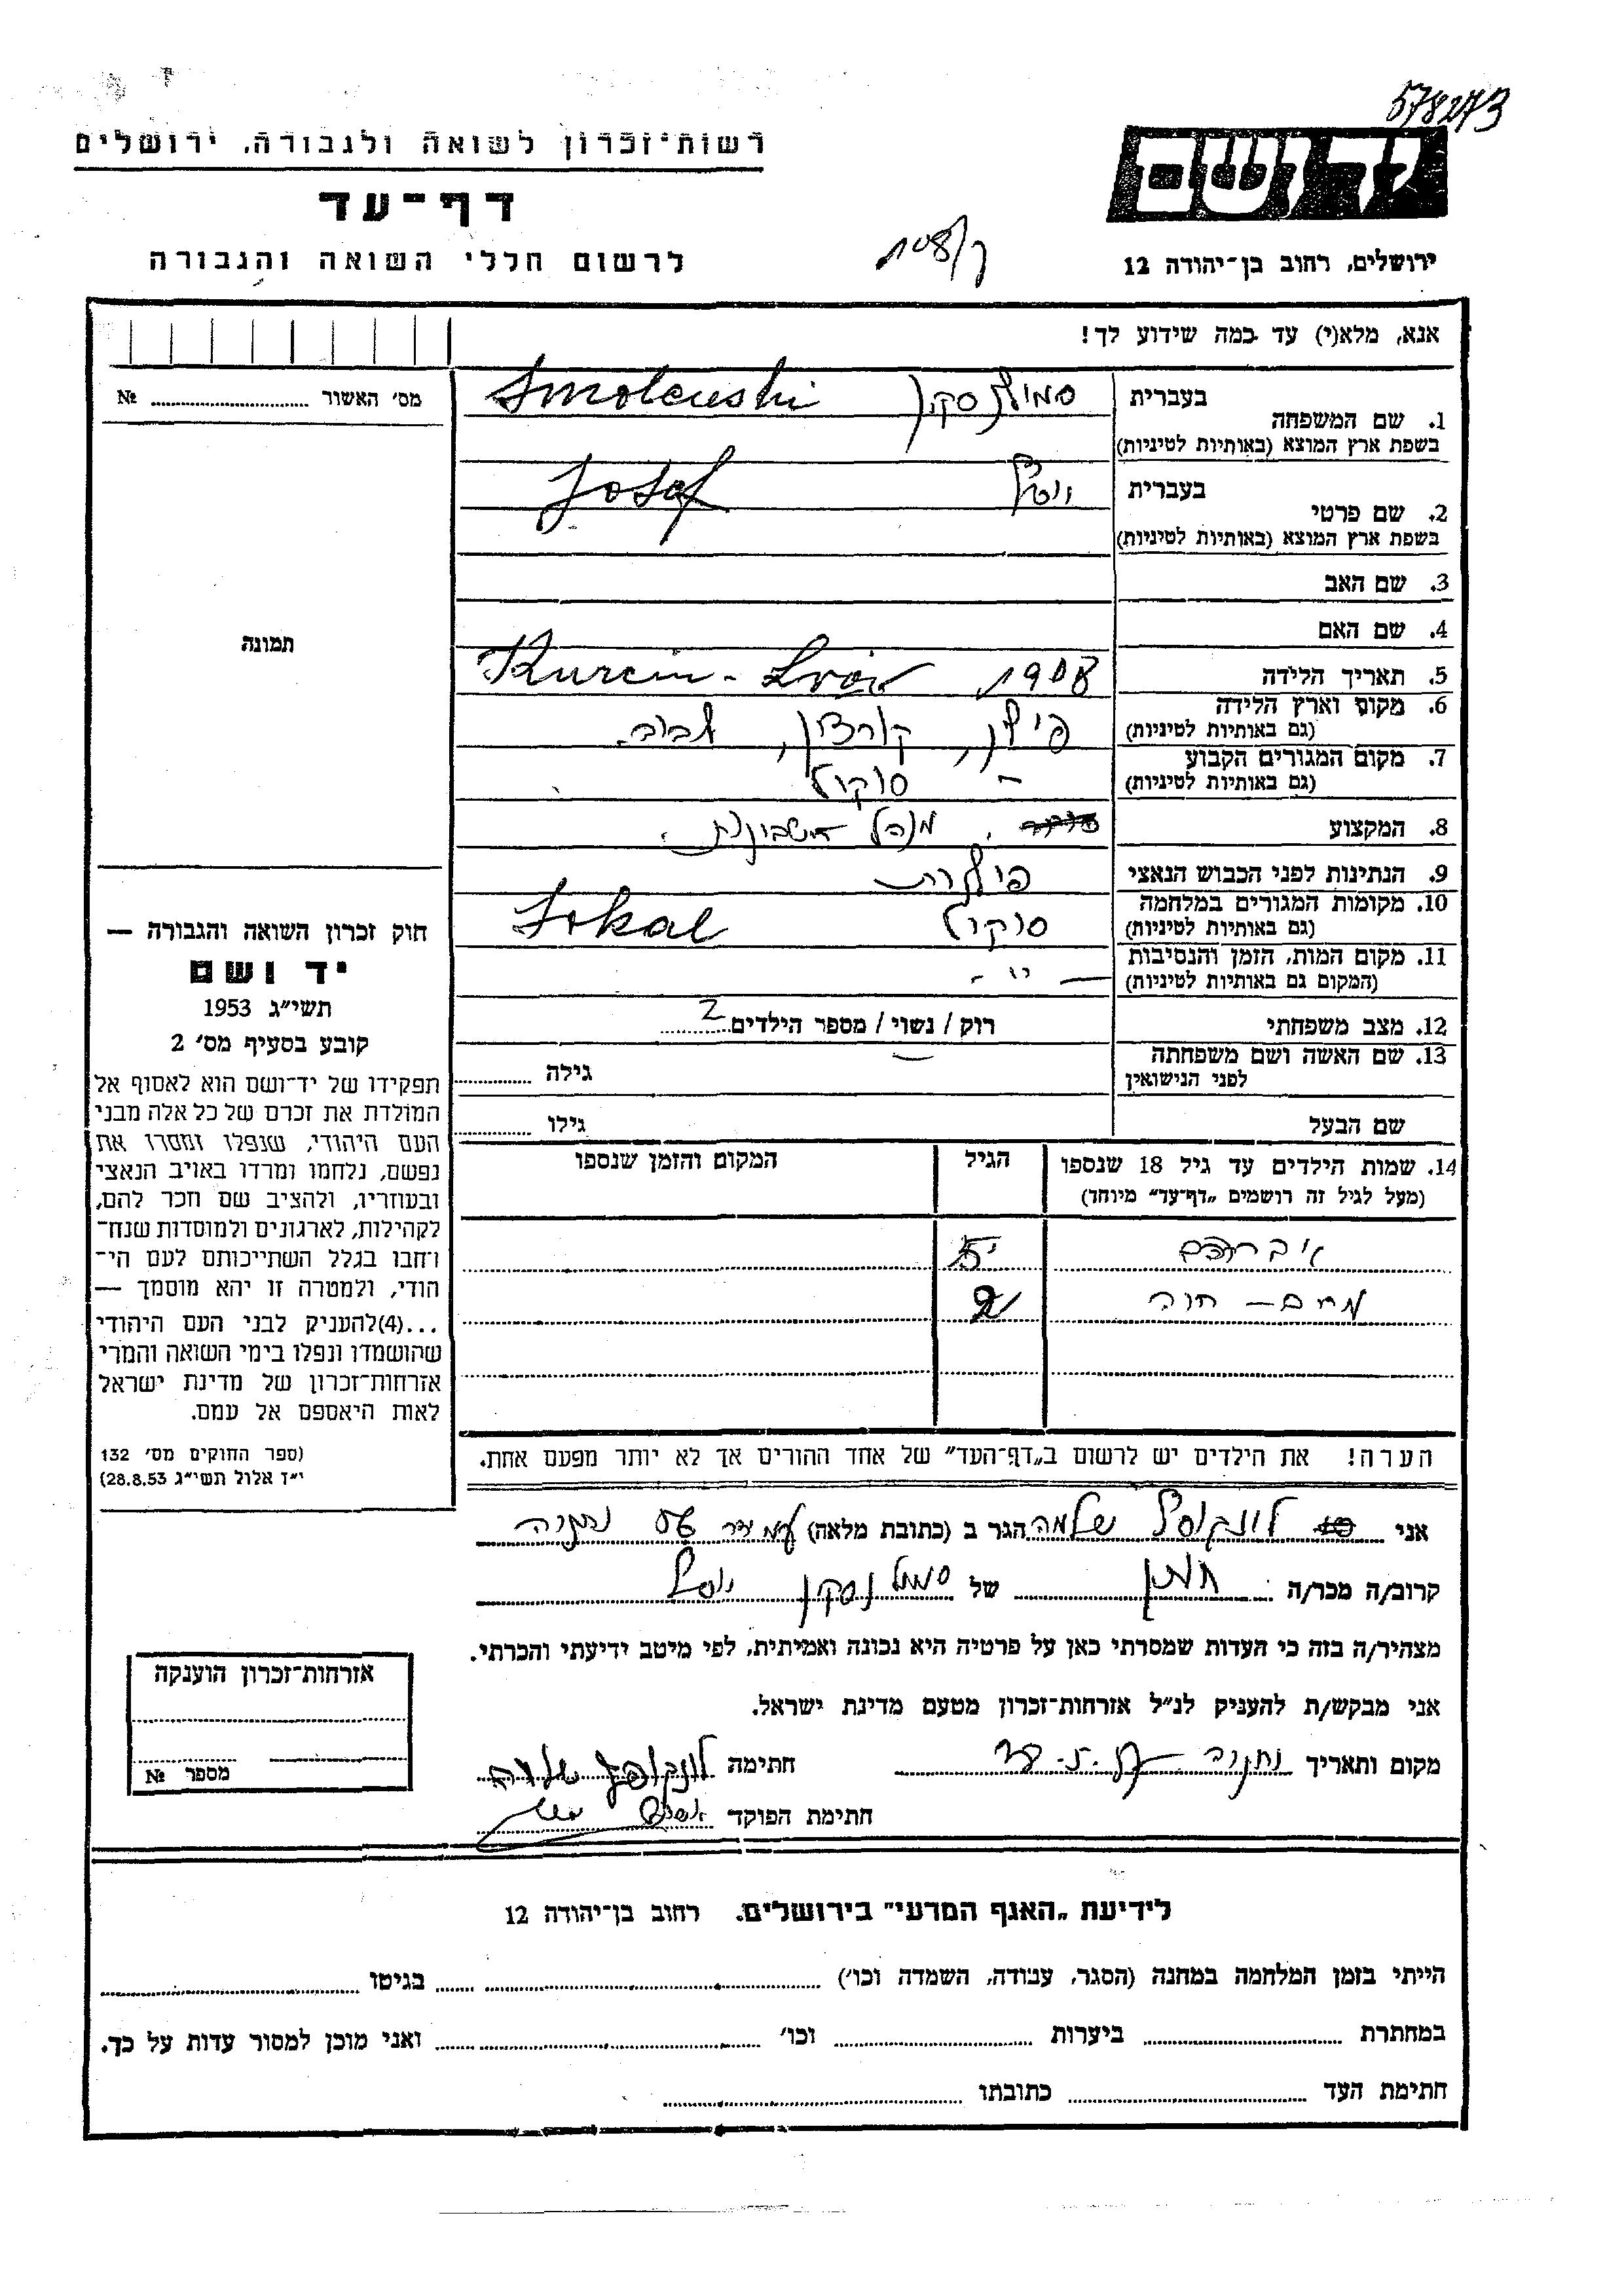 578273
רשות־זכרון לשואה ולגבורה, ירושלים
יד ושם
דף־עד
לרשום חללי השואה והגבורה
ירושלים, רחוב בן־יהודה 12
108/
אנא, מלא(י) עד כמה שידוע לך!
מס׳ האשור № 
בעברית
1. שם המשפחה
בשפת ארץ המוצא (באותיות לטיניות)
סמולנסקי Smolenski
בעברית
2. שם פרטי
בשפת ארץ המוצא (באותיות לטיניות)
יוסף Josef
3. שם האב
4. שם האם
תמונה
5. תאריך הלידה 1908 Kurcin - Lvów
6. מקום וארץ הלידה
(גם באותיות לטיניות)
פולין, קורצין, לבוב
7. מקום המגורים הקבוע
(גם באותיות לטיניות)
סוקול
8. המקצוע מנהל חשבונות
9. הנתינות לפני הכבוש הנאצי פולנית
10. מקומות המגורים במלחמה
(גם באותיות לטיניות)
סוקול Sokal
11. מקום המות, הזמן והנסיבות
(המקום גם באותיות לטיניות)
— " —
12. מצב משפחתי רוק / נשוי / מספר הילדים 2
13. שם האשה ושם משפחתה
לפני הנישואין
גילה
שם הבעל גילו
14. שמות הילדים עד גיל 18 שנספו
(מעל לגיל זה רושמים „דף־עד״ מיוחד)
הגיל המקום והזמן שנספו
אברהם
מרים - חוה 2
הערה! את הילדים יש לרשום ב„דף־העד״ של אחד ההורים אך לא יותר מפעם אחת.
חוק זכרון השואה והגבורה —
יד ושם
תשי״ג 1953
קובע בסעיף מס׳ 2
תפקידו של יד־ושם הוא לאסוף אל
המולדת את זכרם של כל אלה מבני
העם היהודי, שנפלו ומסרו את
נפשם, נלחמו ומרדו באויב הנאצי
ובעוזריו, ולהציב שם וזכר להם,
לקהילות, לארגונים ולמוסדות שנח־
רחבו בגלל השתייכותם לעם הי־
הודי, ולמטרה זו יהא מוסמך —
...(4)להעניק לבני העם היהודי
שהושמדו ונפלו בימי השואה והמרי
אזרחות־זכרון של מדינת ישראל
לאות היאספם אל עמם.
(ספר החוקים מס׳ 132
י״ז אלול תשי״ג 28.8.53)
אני שלמה הגר ב (כתובת מלאה) נתניה
קרוב/ה מכר/ה חתן של סמולנסקי יוסף
מצהיר/ה בזה כי העדות שמסרתי כאן על פרטיה היא נכונה ואמיתית, לפי מיטב ידיעתי והכרתי.
אני מבקש/ת להעניק לנ״ל אזרחות־זכרון מטעם מדינת ישראל.
מקום ותאריך נתניה חתימה
חתימת הפוקד
אזרחות־זכרון הוענקה
מספר №
לידיעת „האגף המדעי״ בירושלים. רחוב בן־יהודה 12
הייתי בזמן המלחמה במחנה (הסגר, עבודה, השמדה וכו׳) בגיטו
במחתרת ביערות וכו׳ ואני מוכן למסור עדות על כך.
חתימת העד כתובתו